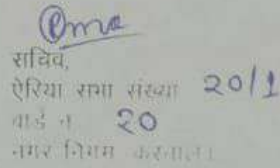 सचिव,
ऐरिया सभा संख्या 20/1
वार्ड न 20
नगर निगम करनाल।